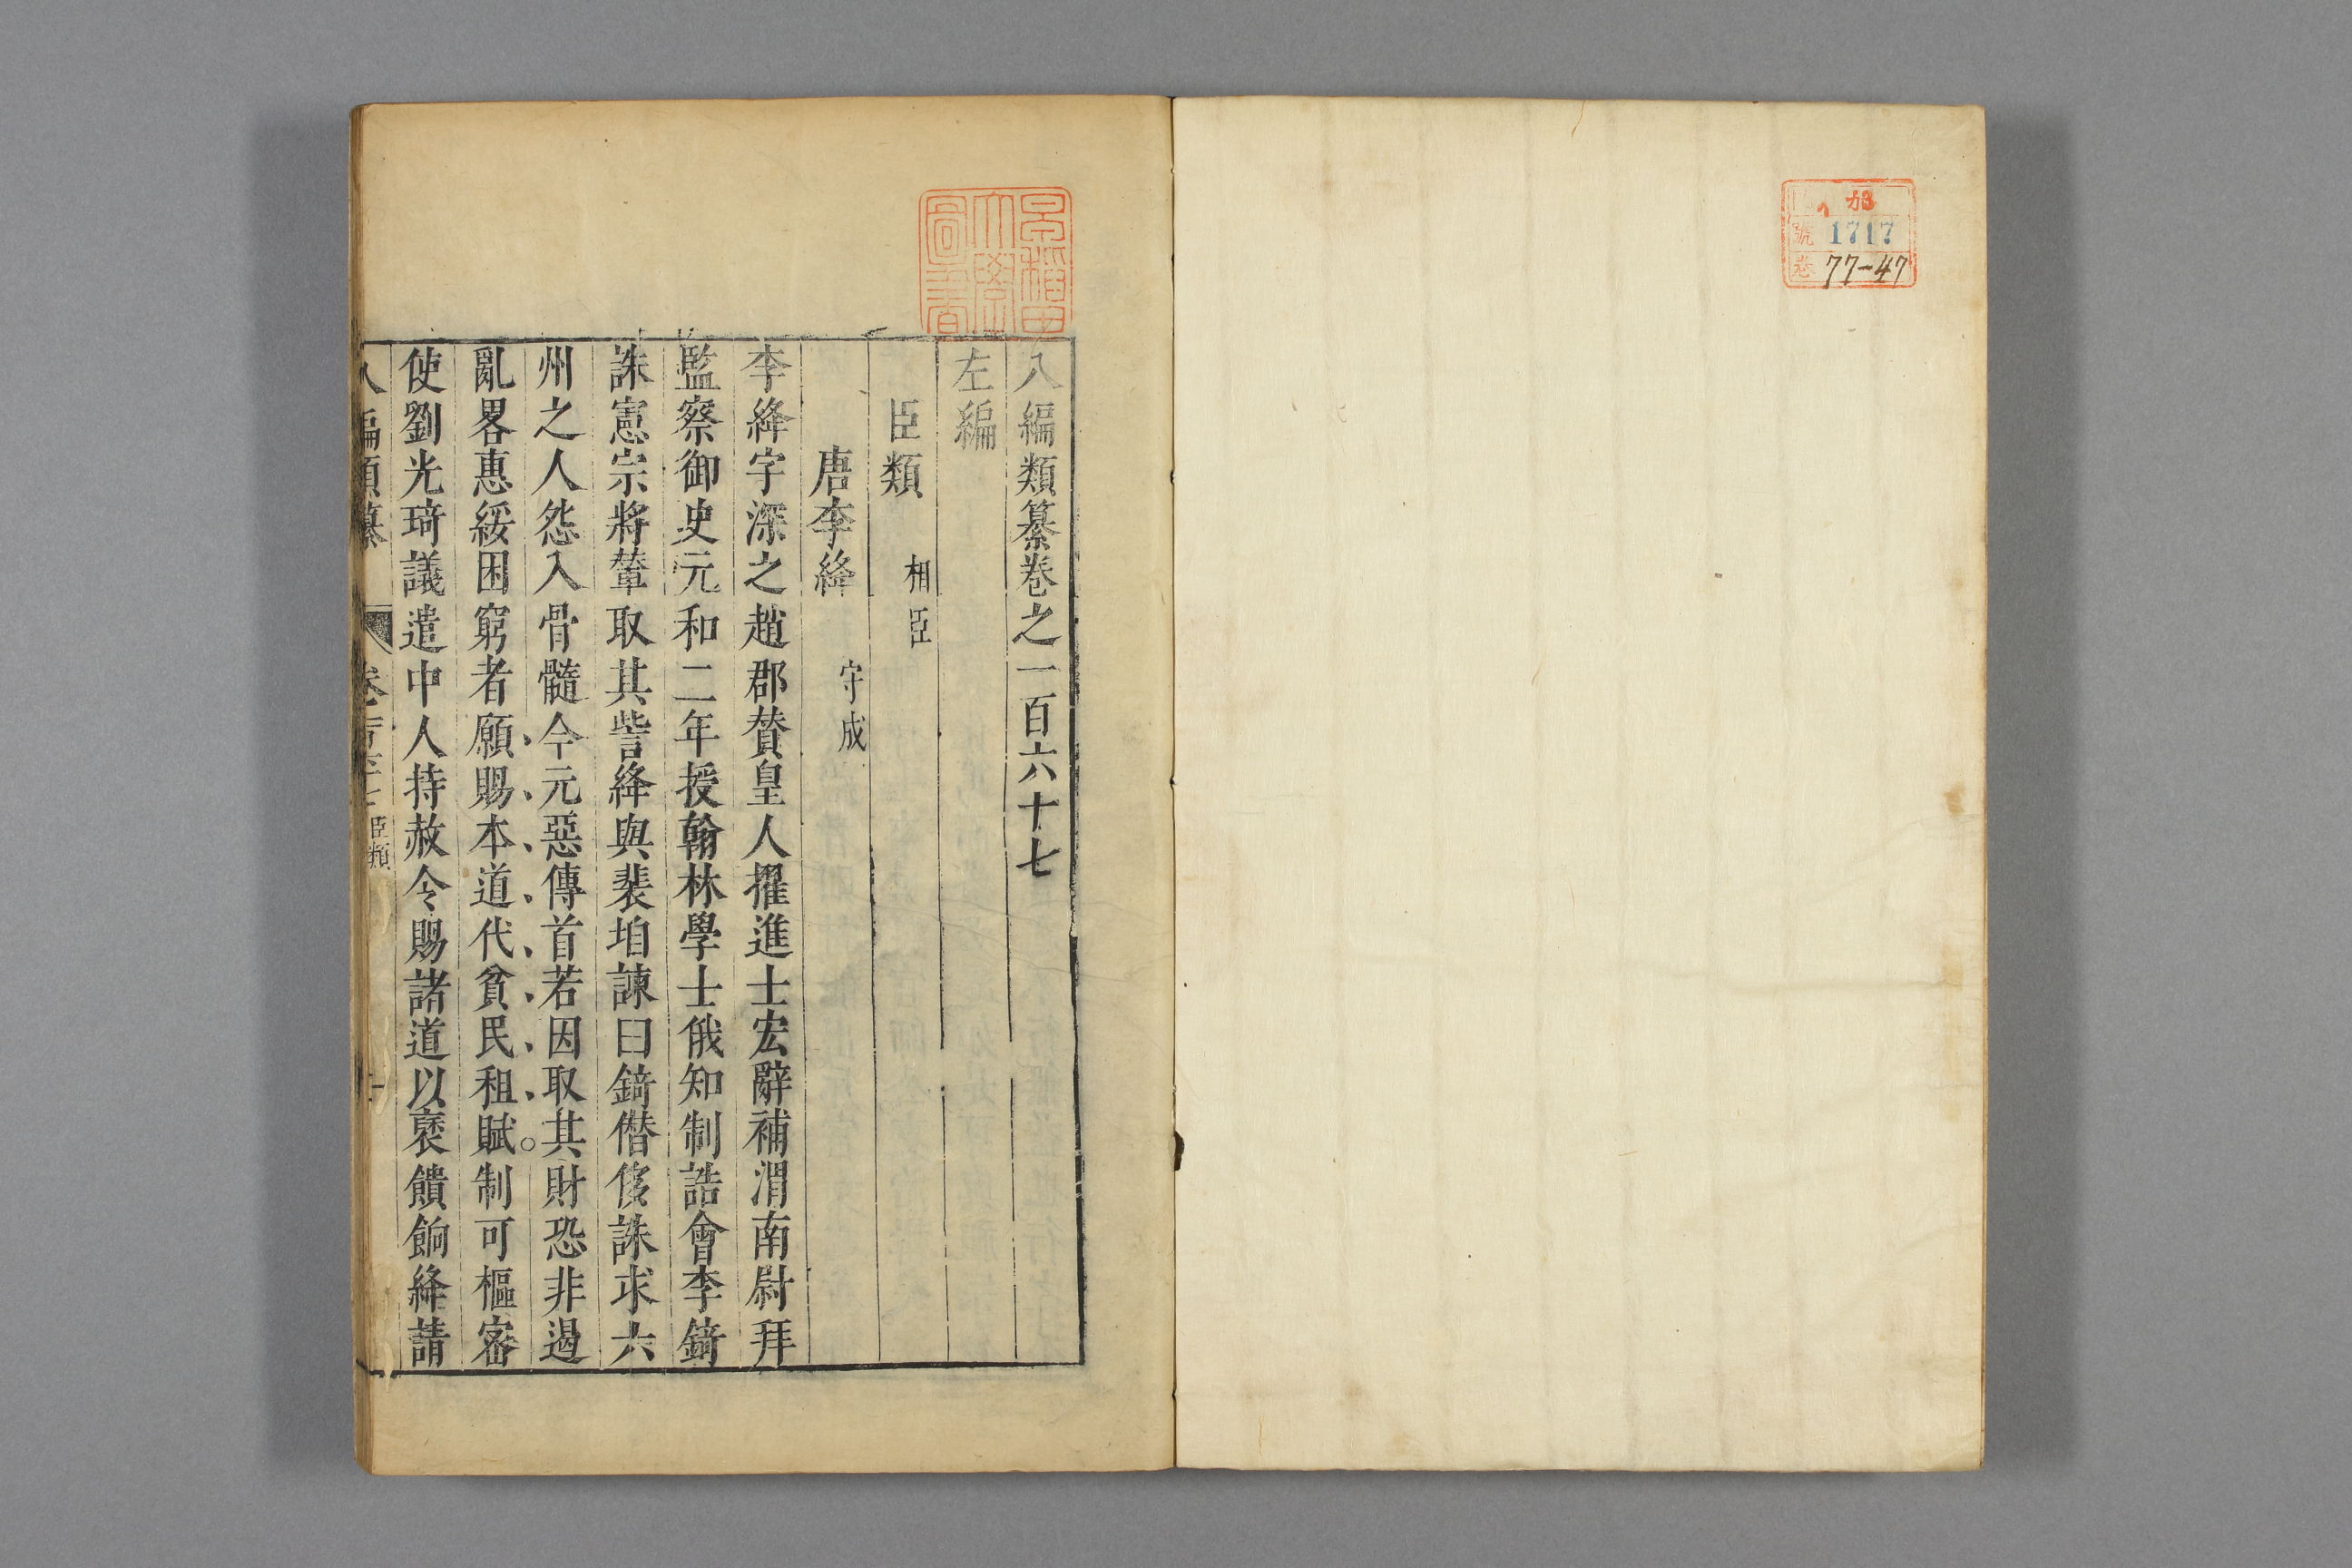 加
號 1717
卷 77-47
早稲田大學圖書
八編類纂卷之一百六十七
左編
臣類 相臣
唐李絳 守成
李絳字深之趙郡賛皇人擢進士宏辭補渭南尉拜
監察御史元和二年授翰林學士俄知制誥會李錡
誅憲宗將輦取其訾絳與裴垍諫曰錡僣侈誅求六
州之人怨入骨髓今元惡傳首若因取其財恐非遏
亂畧惠綏困窮者願賜本道代貧民租賦制可樞密
使劉光琦議遣中人持赦令賜諸道以裒饋餉絳請
八編類纂 臣類